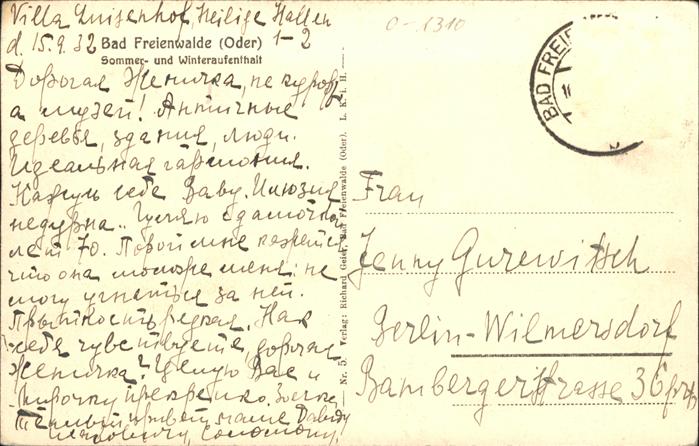 Villa Luisenhof, Heilige Hallen
d. 15.9.32 1–2
Bad Freienwalde (Oder)
Sommer- und Winteraufenthalt
Дорогая Женичка, не курорт,
а музей! Античные
деревья, здания, люди.
Идеальная гармония.
Кажусь себе Baby. Иллюзия
недурна.. Гуляю с дамочкой
лет 70. Порой мне кажется
что она моложе меня: не
могу угнаться за ней.
Прыткость редкая. Как
себя чувствуете, дорогая
Женичка? Целую Вас и
крепко.
привет маме
Nr. 5. Verlag: Richard Geier, Bad Freienwalde (Oder). L. K. i. H.
0-1310
BAD FREIE
Frau
Jenny Gurewitsch
Berlin-Wilmersdorf
Bambergerstrasse 36